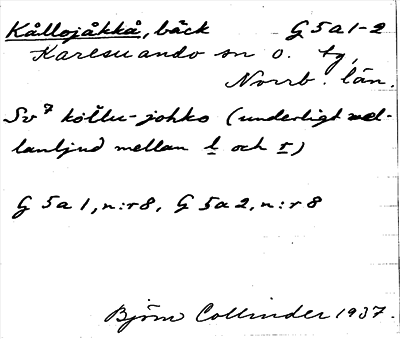 Kållojåkkå, bäck G 5 a 1-2
Karesuando sn o. tg,
Norrb. län.
Sv⁷ kollu-johko (underligt mel-
lanljud mellan l och I)
G 5 a 1, n:r 8, G 5 a 2, n:r 8
Björn Collinder 1937.